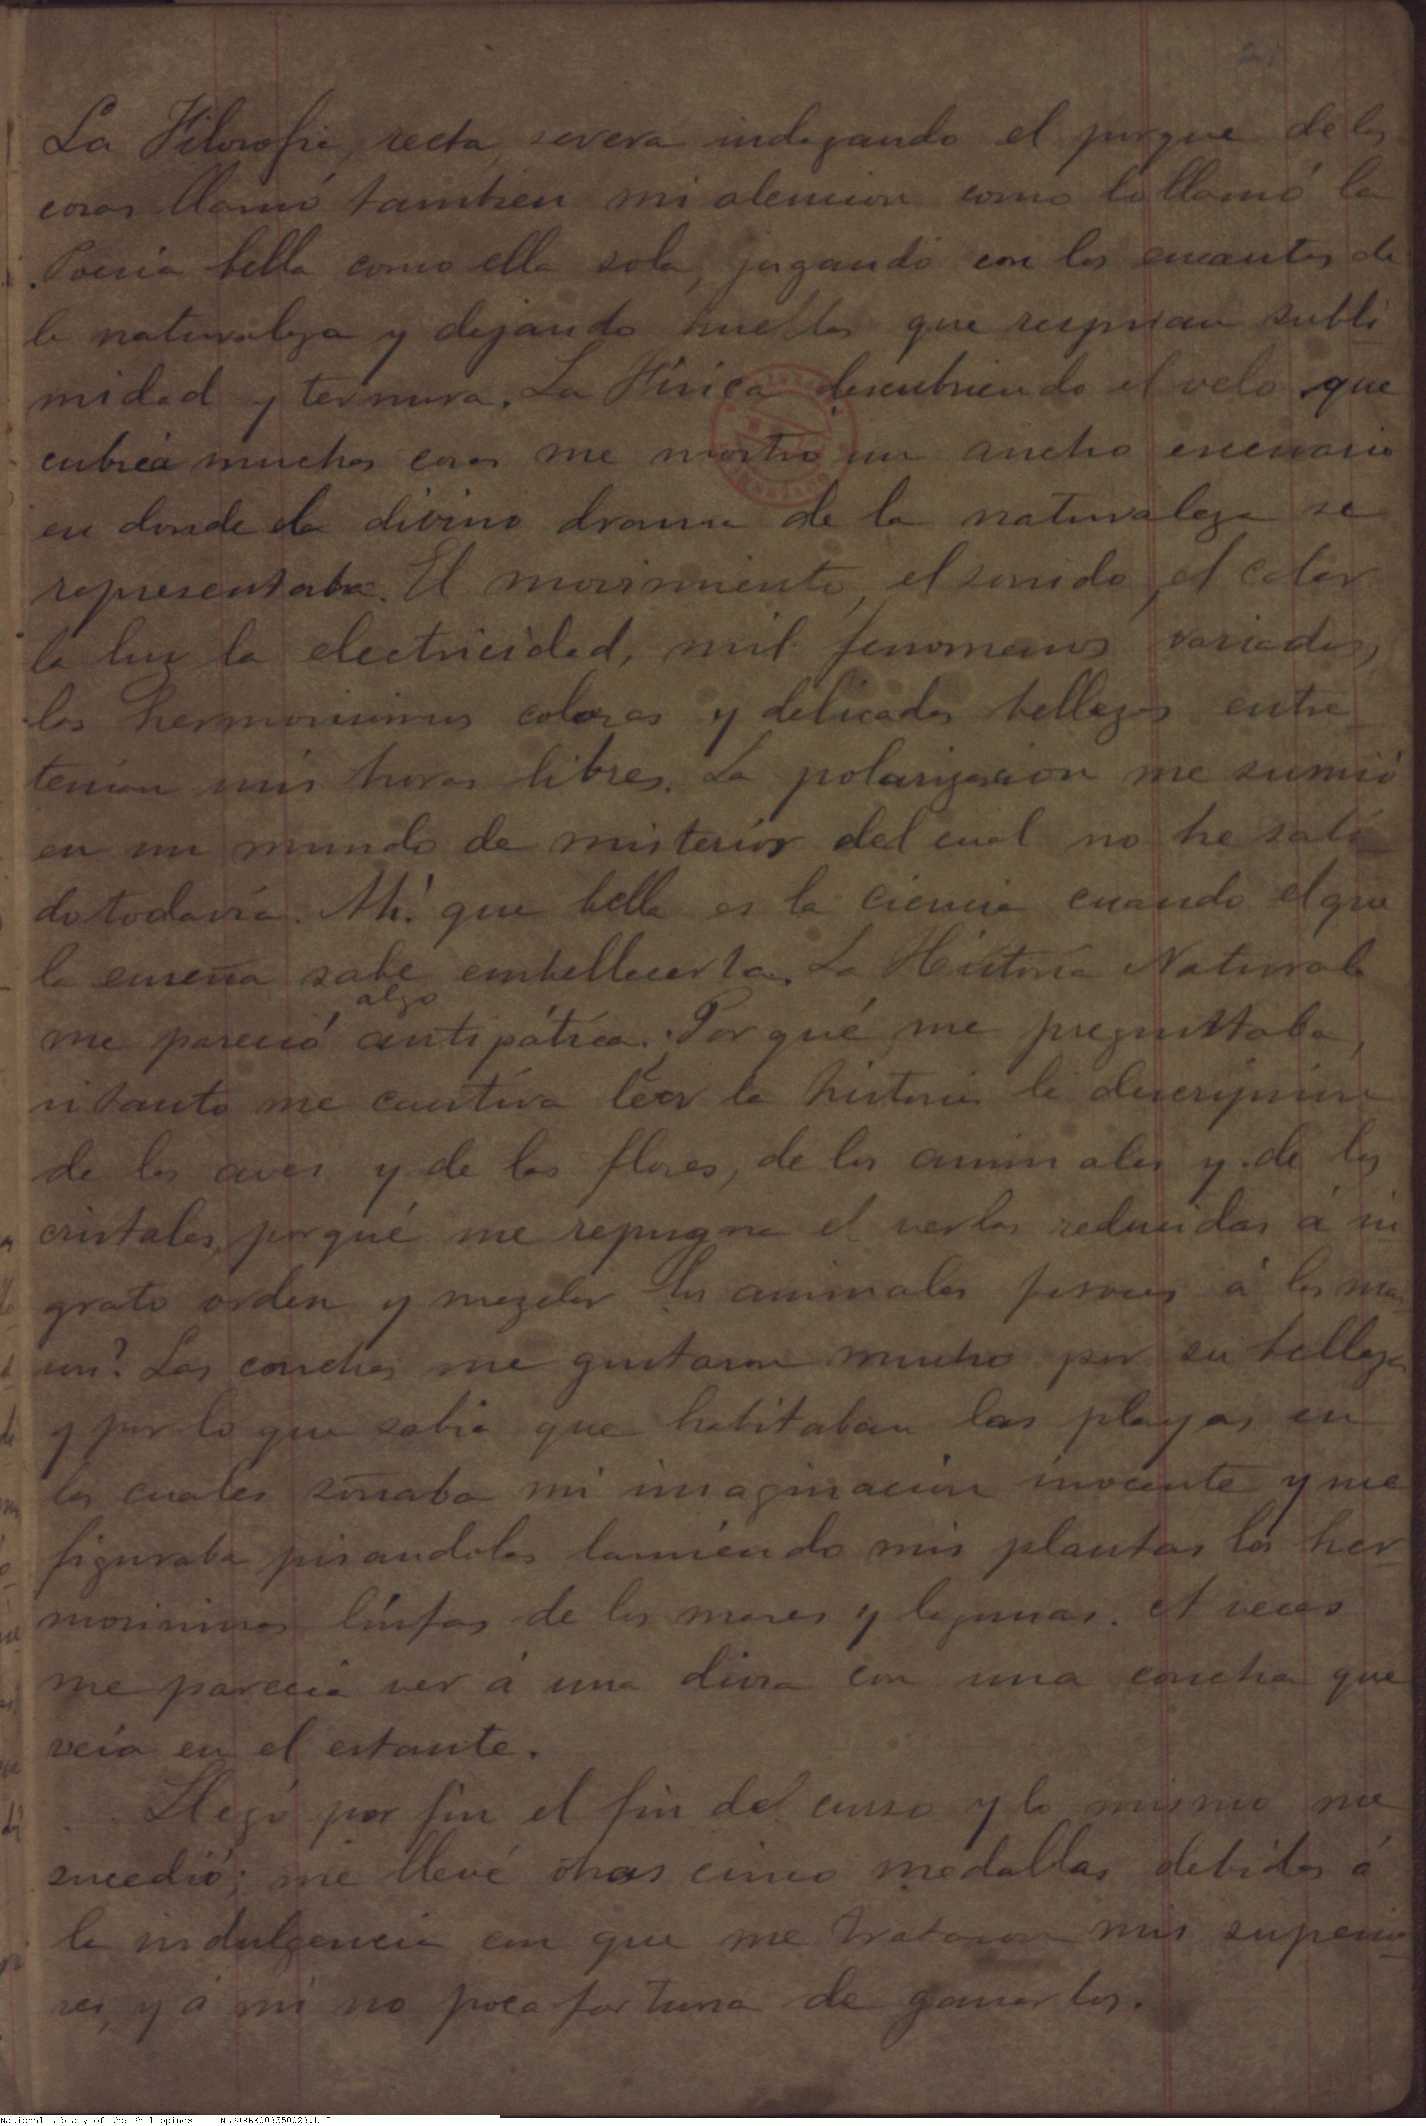 La Filosofia, recta, severa indagando el porque de las
cosas llamó tambien mi atencion como la llamó la
Poesia bella como ella sola, jugando con los encantos de
la naturaleza y dejando huellas que respiran subli-
midad y ternura. La Física descubriendo el velo que
cubría muchas cosas me mostro un ancho escenario
en donde el divino drama de la naturaleza se
representaba. El movimiento, el sonido, el calor
la luz la electricidad, mil fenomenos variados,
los hermosisimos colores y delicadas bellezas entre
tenian mis horas libres. La polarizacion me sumió
en un mundo de misterios del cual no he sali
do todavía. Ah! que bella es la ciencia cuando el que
la enseña sabe embellecerla. La Historia Natural
algo
me pareció antipática. Por qué, me preguntaba,
si tanto me cautiva leer la historia la descripcion
de las aves y de las flores, de los animales y de los
cristales, porqué me repugna el verlos reducidos á in
grato orden y mezclar los animales feroces á los man
sos? Las conchas me gustaron mucho por su belleza
y por lo que sabia que habitaban las playas en
las cuales soñaba mi imaginacion inocente y me
figuraba pisandolas lamiendo mis plantas las her-
mosisimas línfas de los mares y lagunas. A veces
me parecia ver á una diosa con una concha que
veía en el estante.
Llegó por fin el fin del curso y lo mismo me
sucedió; me llevé otras cinco medallas debidas á
la indulgencia con que me trataron mis superio-
res, y á mi no poca fortuna de ganarlas.
National Library of the Philippines